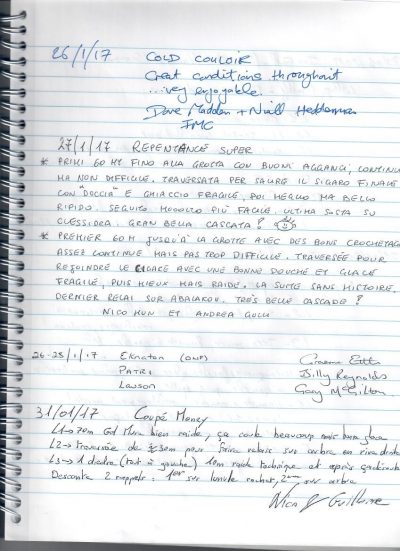 26/1/17 COLD COULOIR
Great conditions throughout
...very enjoyable.
Dave Madden + Niall
IMC
27/1/17 REPENTANCE SUPER
* PRIMI 60 MT FINO ALLA GROTTA CON BUONI AGGANCI, CONTINUA
MA NON DIFFICILE. TRAVERSATA PER SALIRE IL SIGARO FINALE
CON "DOCCIA" E GHIACCIO FRAGILE, POI MEGLIO MA BELLO
RIPIDO. SEGUITO MOOOLTO PIÙ FACILE. ULTIMA SOSTA SU
CLESSIDRA. GRAN BELLA CASCATA!
* PREMIER 60 M JUSQU'À LA GROTTE AVEC DES BONS CROCHETAGE
ASSEZ CONTINUE MAIS PAS TROP DIFFICILE. TRAVERSÉE POUR
REJOINDRE LE CIGARE AVEC UNE BONNE DOUCHE ET GLACE
FRAGILE, PUIS MIEUX MAIS RAIDE. LA SUITE SANS HISTOIRE.
DERNIER RELAI SUR ABALAKOV. TRÈS BELLE CASCADE!
NICO ET ANDREA
26-28/1/17 Eknaton
PATRI Billy Reynolds
Lawson Gary McGilton
31/01/17 Coupé Money
L1→ bien raide, ça beaucoup mais
L2→ traversée de 30m pour faire relais sur arbre en rive droite
L3→ 1 dièdre (tout à gauche) 10m raide technique et après
Descente 2 rappels: 1er sur lunule rocher, 2ème sur arbre
Nico & Guillaume